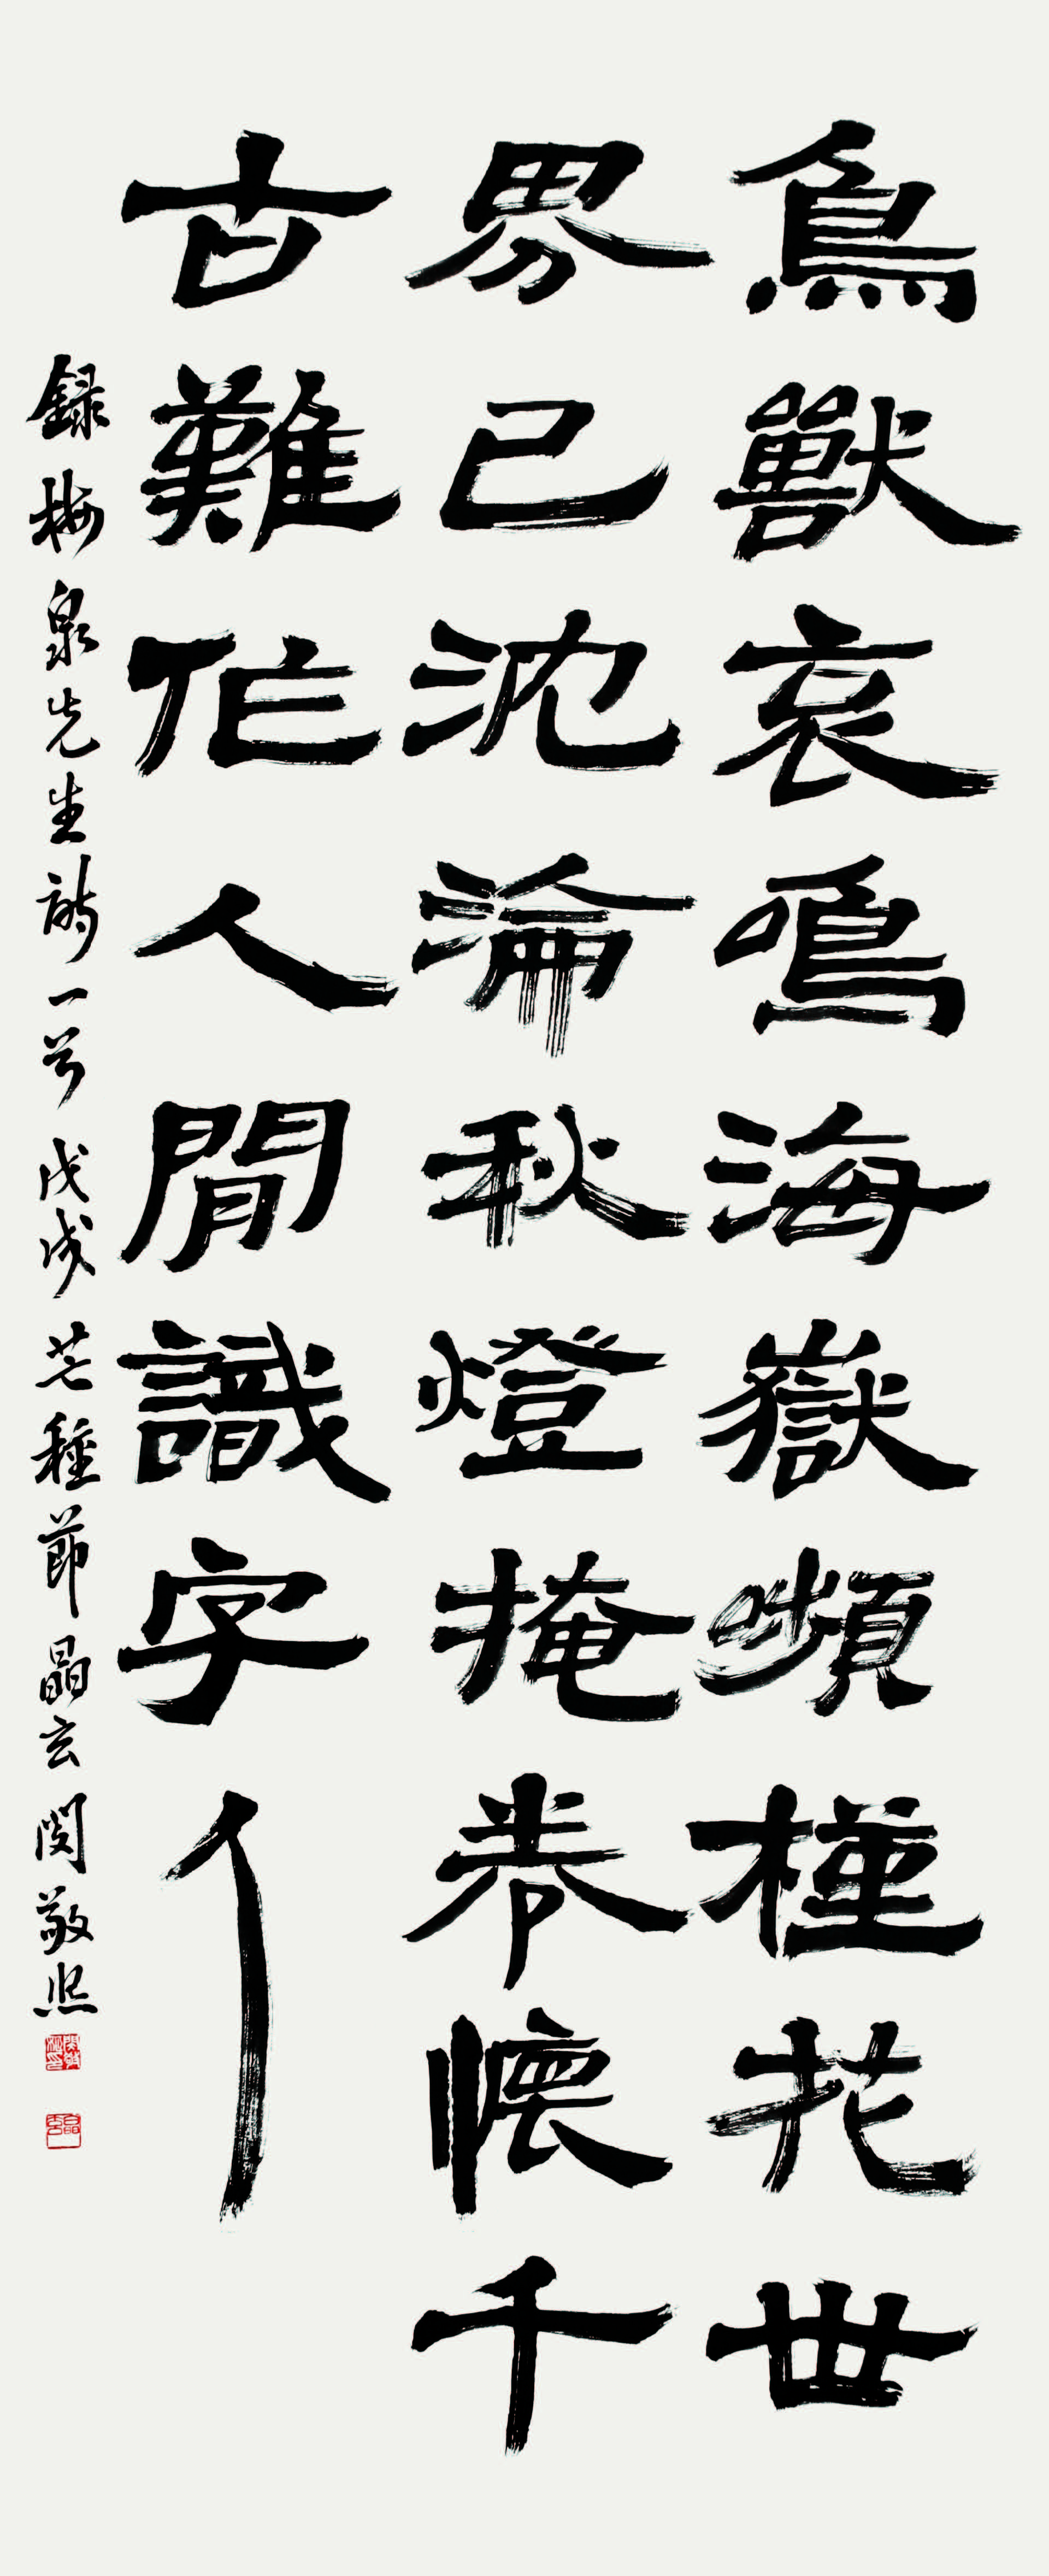 鳥獸哀鳴海嶽嚬槿花世
界已沈淪秋燈掩卷懷千
古難作人間識字人
錄梅泉先生詩一首 戊戌芒種節 晶玄 閔敬熙